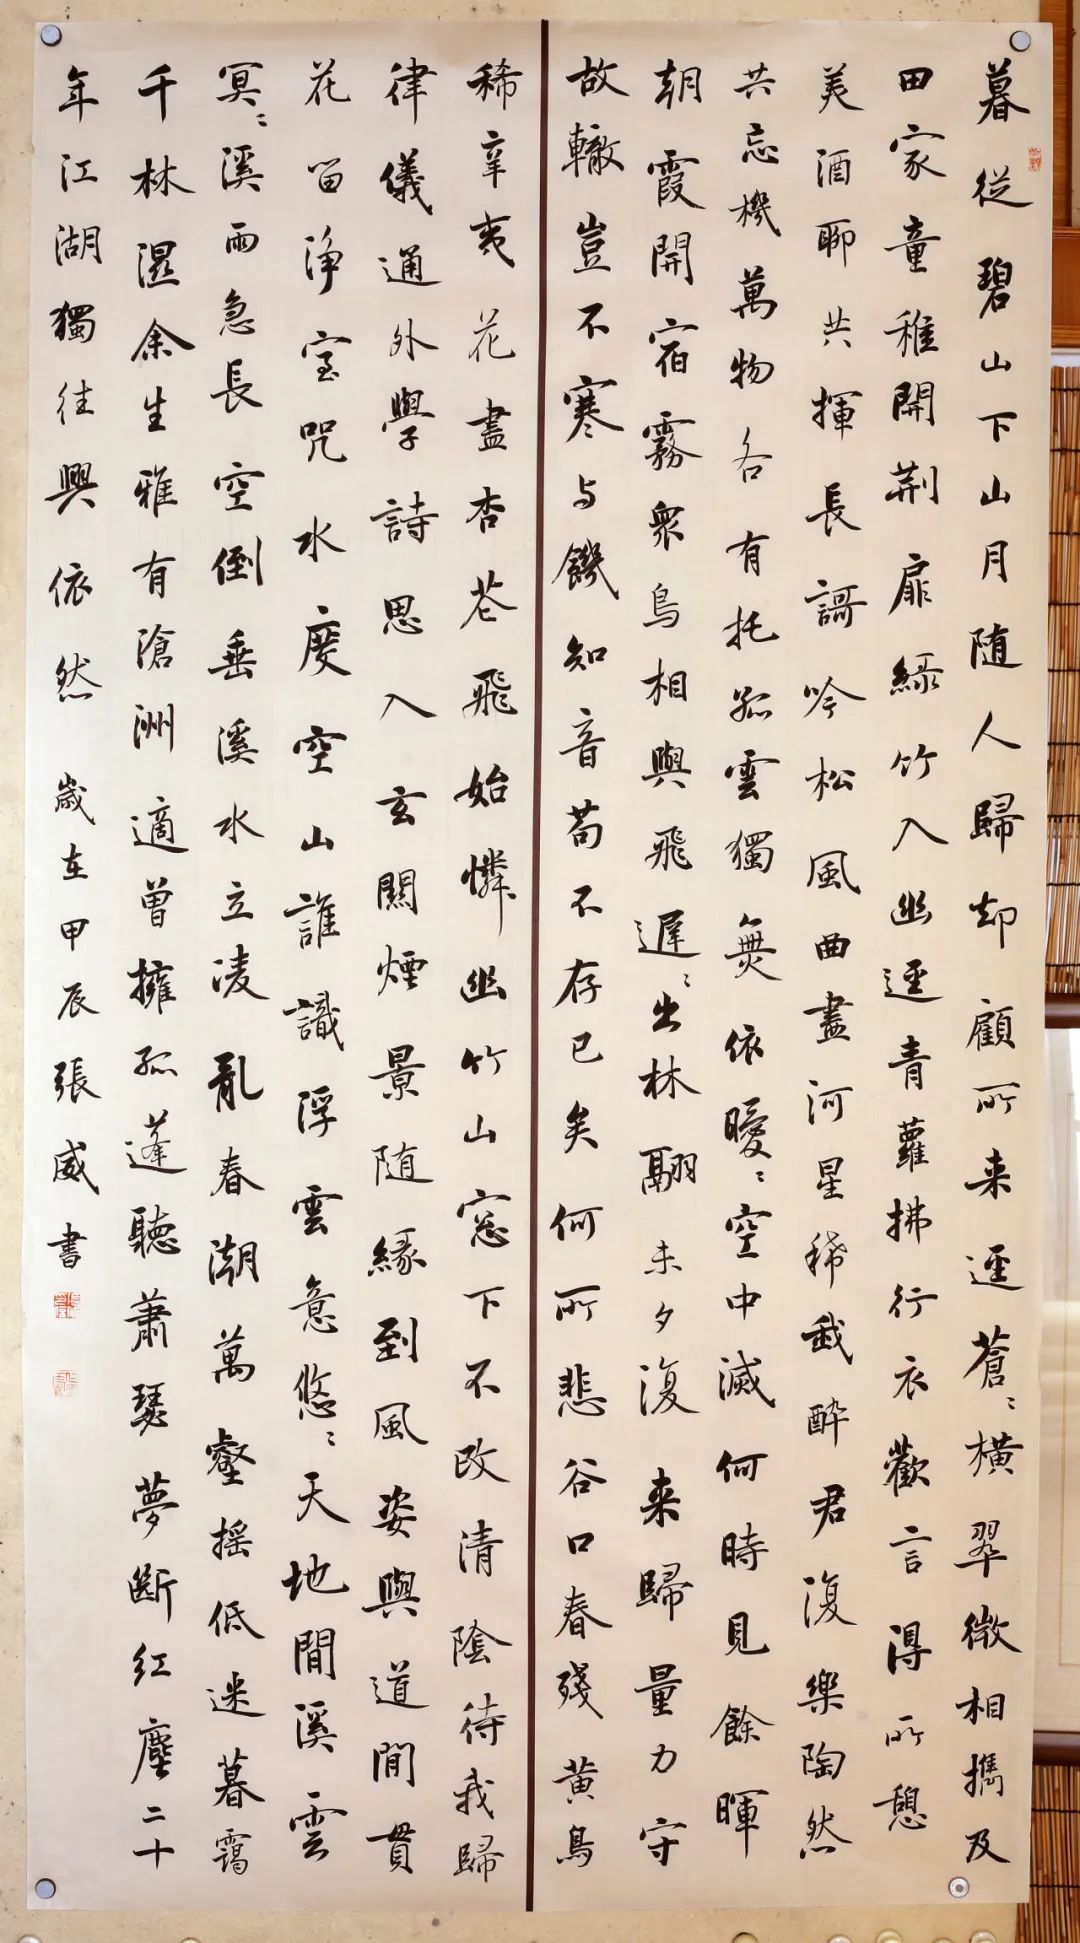 暮從碧山下山月随人歸却顧所来逕蒼〻横翠微相攜及
田家童稚開荆扉緑竹入幽逕青蘿拂行衣歡言得所憩
美酒聊共揮長謌吟松風曲盡河星稀我醉君復樂陶然
共忘機萬物各有托孤雲獨無依曖〻空中滅何時見餘暉
朝霞開宿霧衆鳥相與飛遲〻出林翮未夕復来歸量力守
故轍豈不寒与饑知音苟不存已矣何所悲谷口春殘黄鳥
稀辛夷花盡杏花飛始憐幽竹山窓下不改清陰待我歸
律儀通外學詩思入玄關煙景随緣到風姿與道閒貫
花留净室咒水度空山誰識浮雲意悠〻天地閒溪雲
冥〻溪雨急長空倒垂溪水立凌亂春潮萬壑摇低迷暮靄
千林濕余生雅有滄洲適曾擁孤蓬聽蕭瑟夢斷紅塵二十
年江湖獨往興依然 歲在甲辰張威書